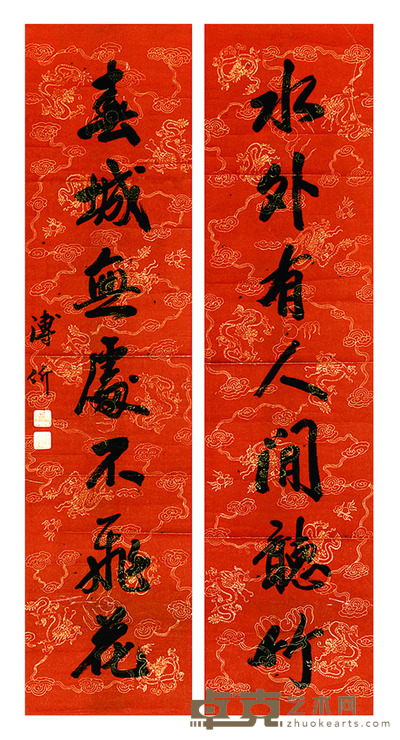 水外有人閒聽竹
春城無處不飛花
溥伒
卓克艺术网
zhuokearts.com